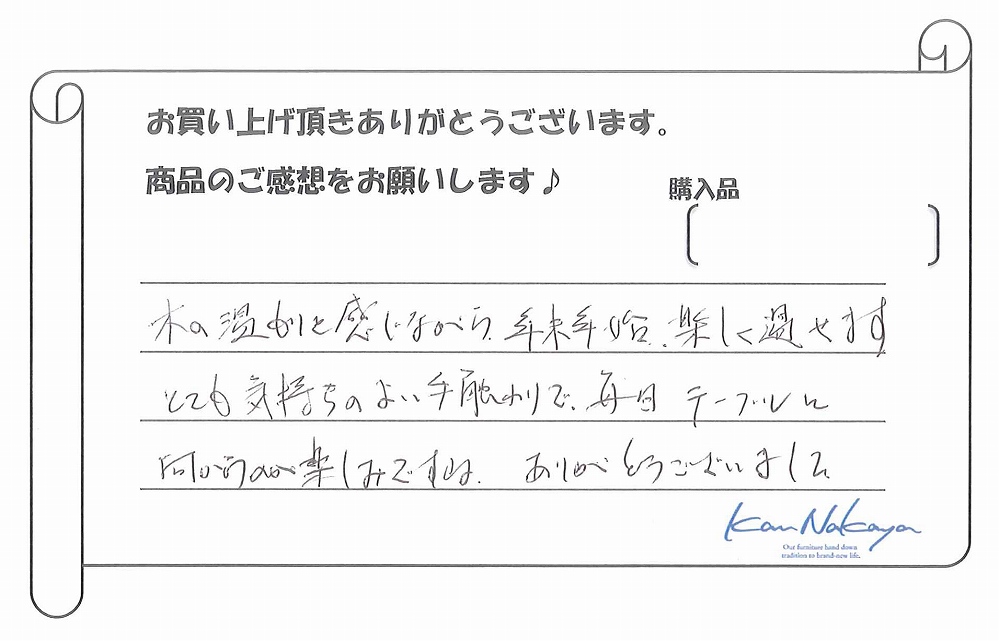 お買い上げ頂きありがとうございます。
商品のご感想をお願いします♪
購入品
木の温もりを感じながら、年末年始、楽しく過せます
とても気持ちのよい手触わりで、毎日 テーブルに
向かうのが楽しみですね。 ありがとうございました
Kan Nakaya
Our furniture hand down
tradition to brand-new life.